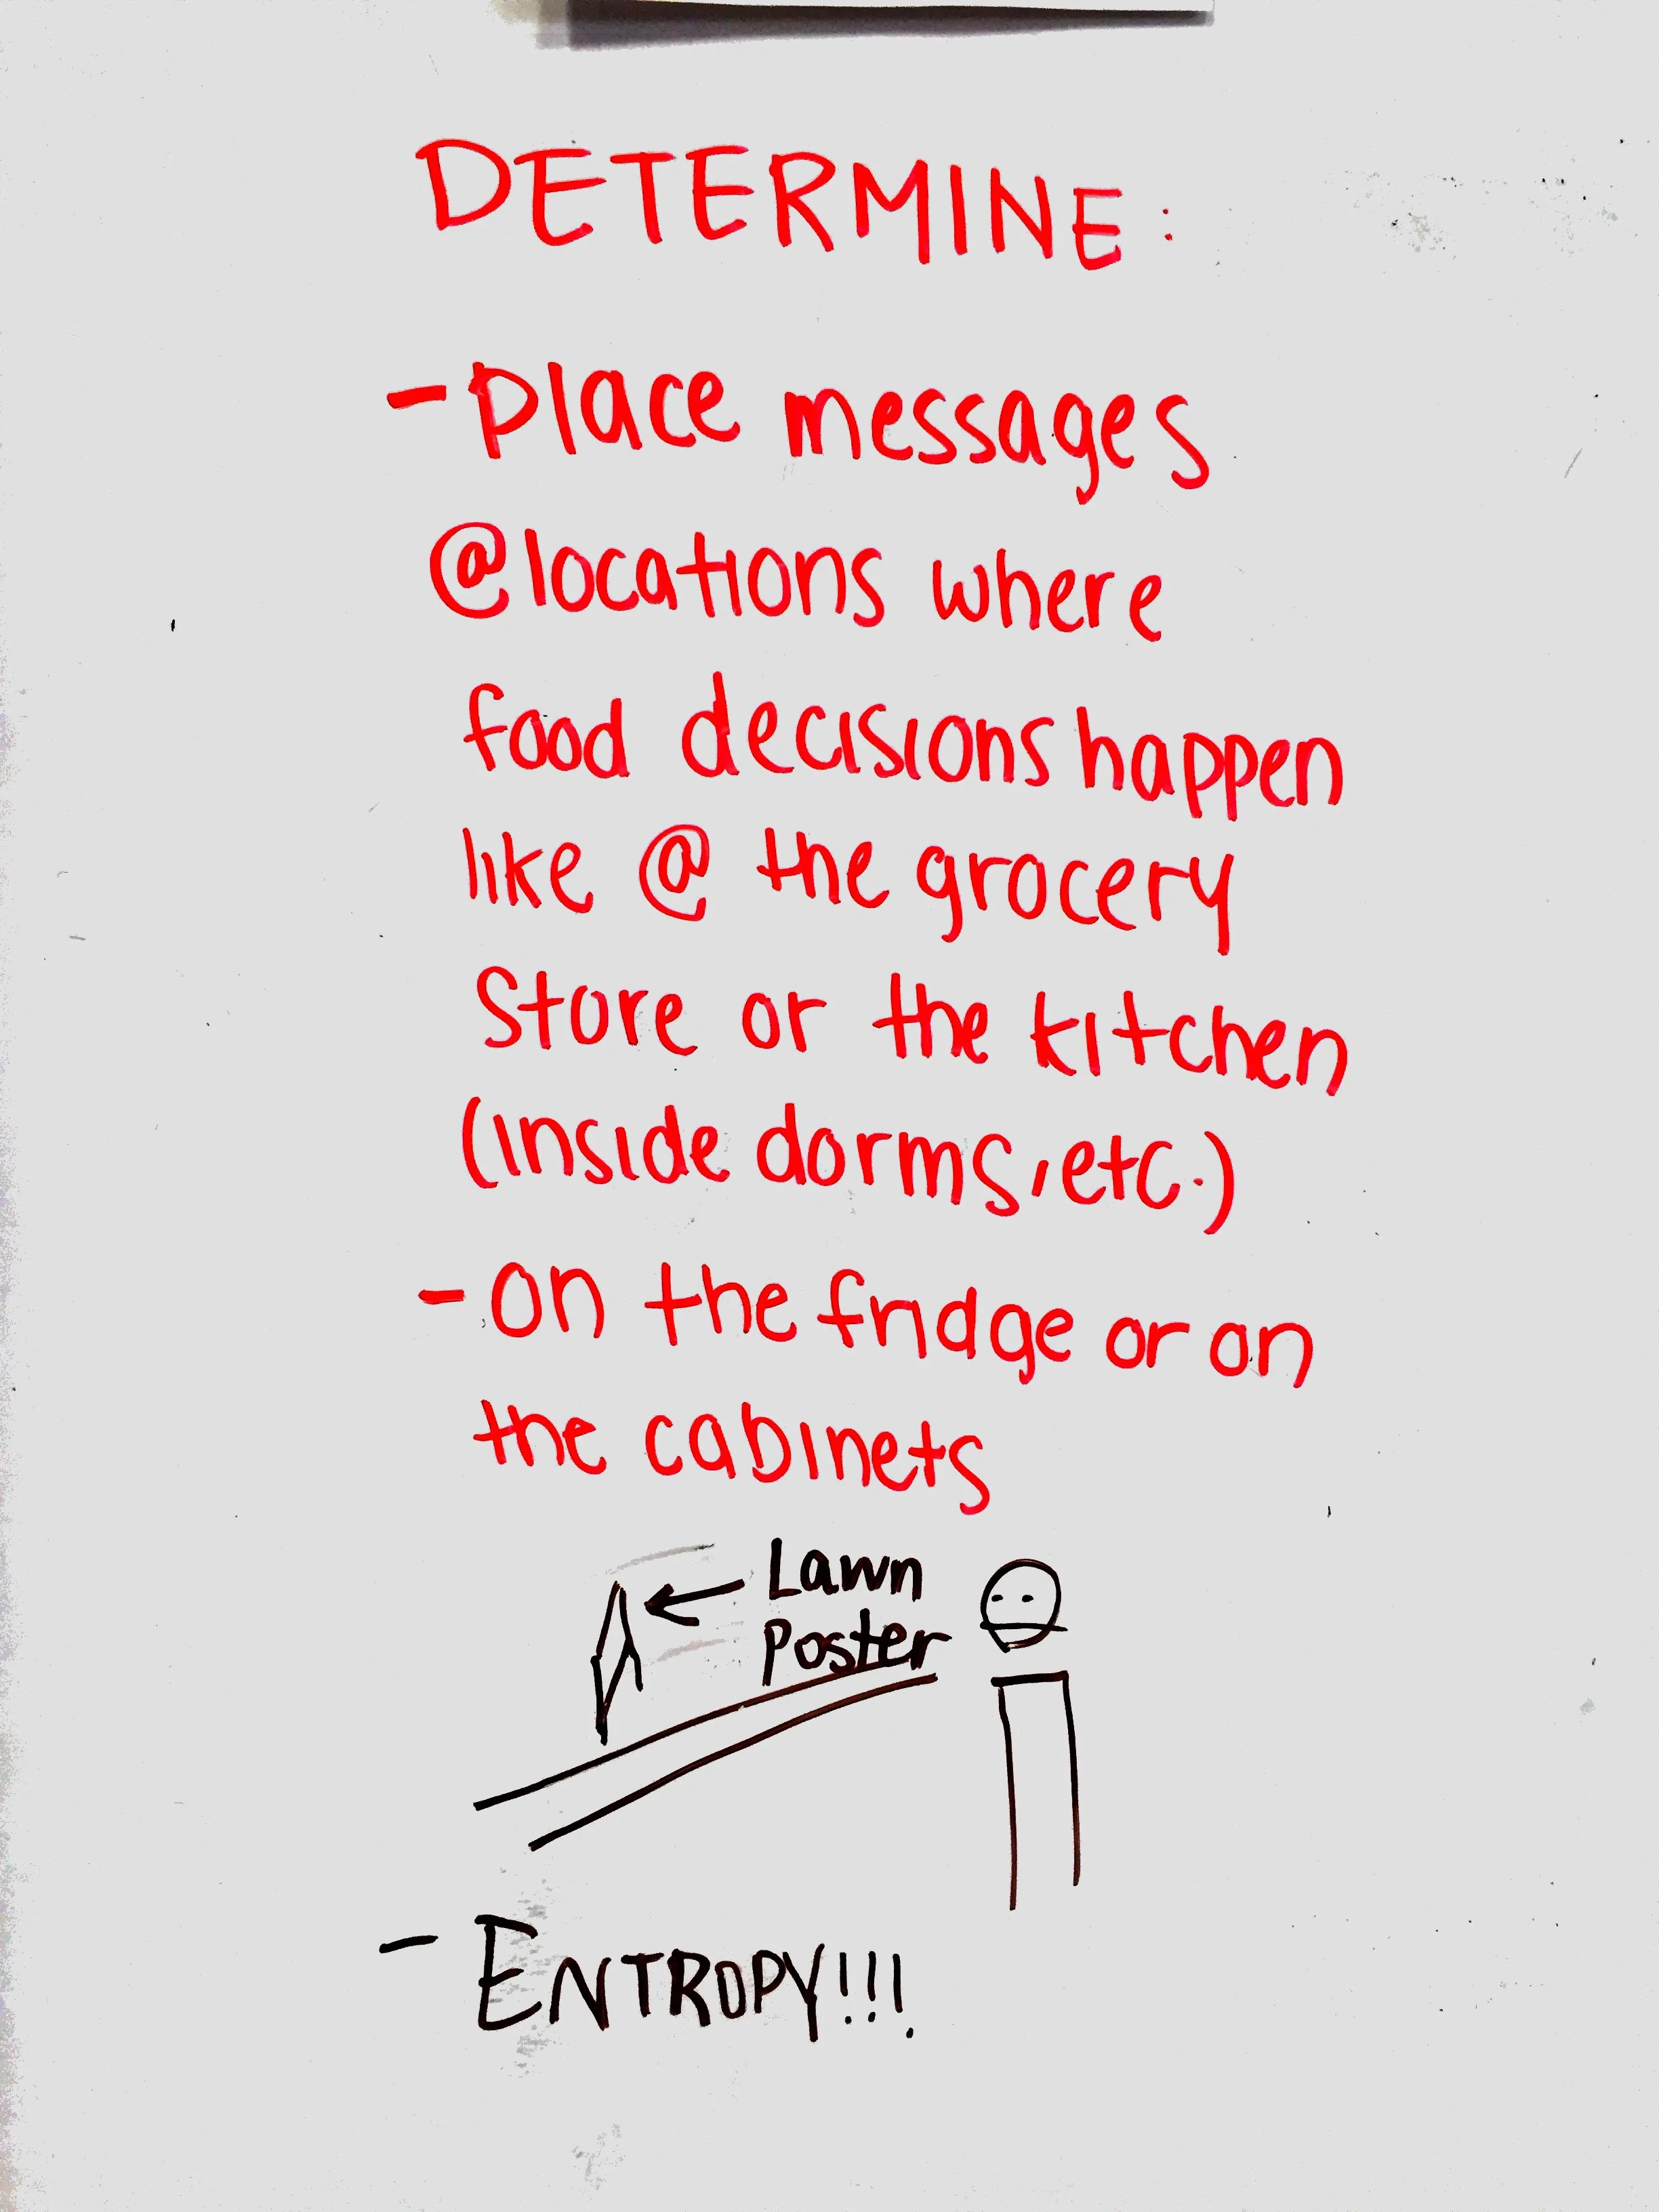 DETERMINE:
- place messages
@locations where
food decisions happen
like @ the grocery
Store or the kitchen
(inside dorms, etc.)
- on the fridge or on
the cabinets
Lawn
Poster
- ENTROPY!!!